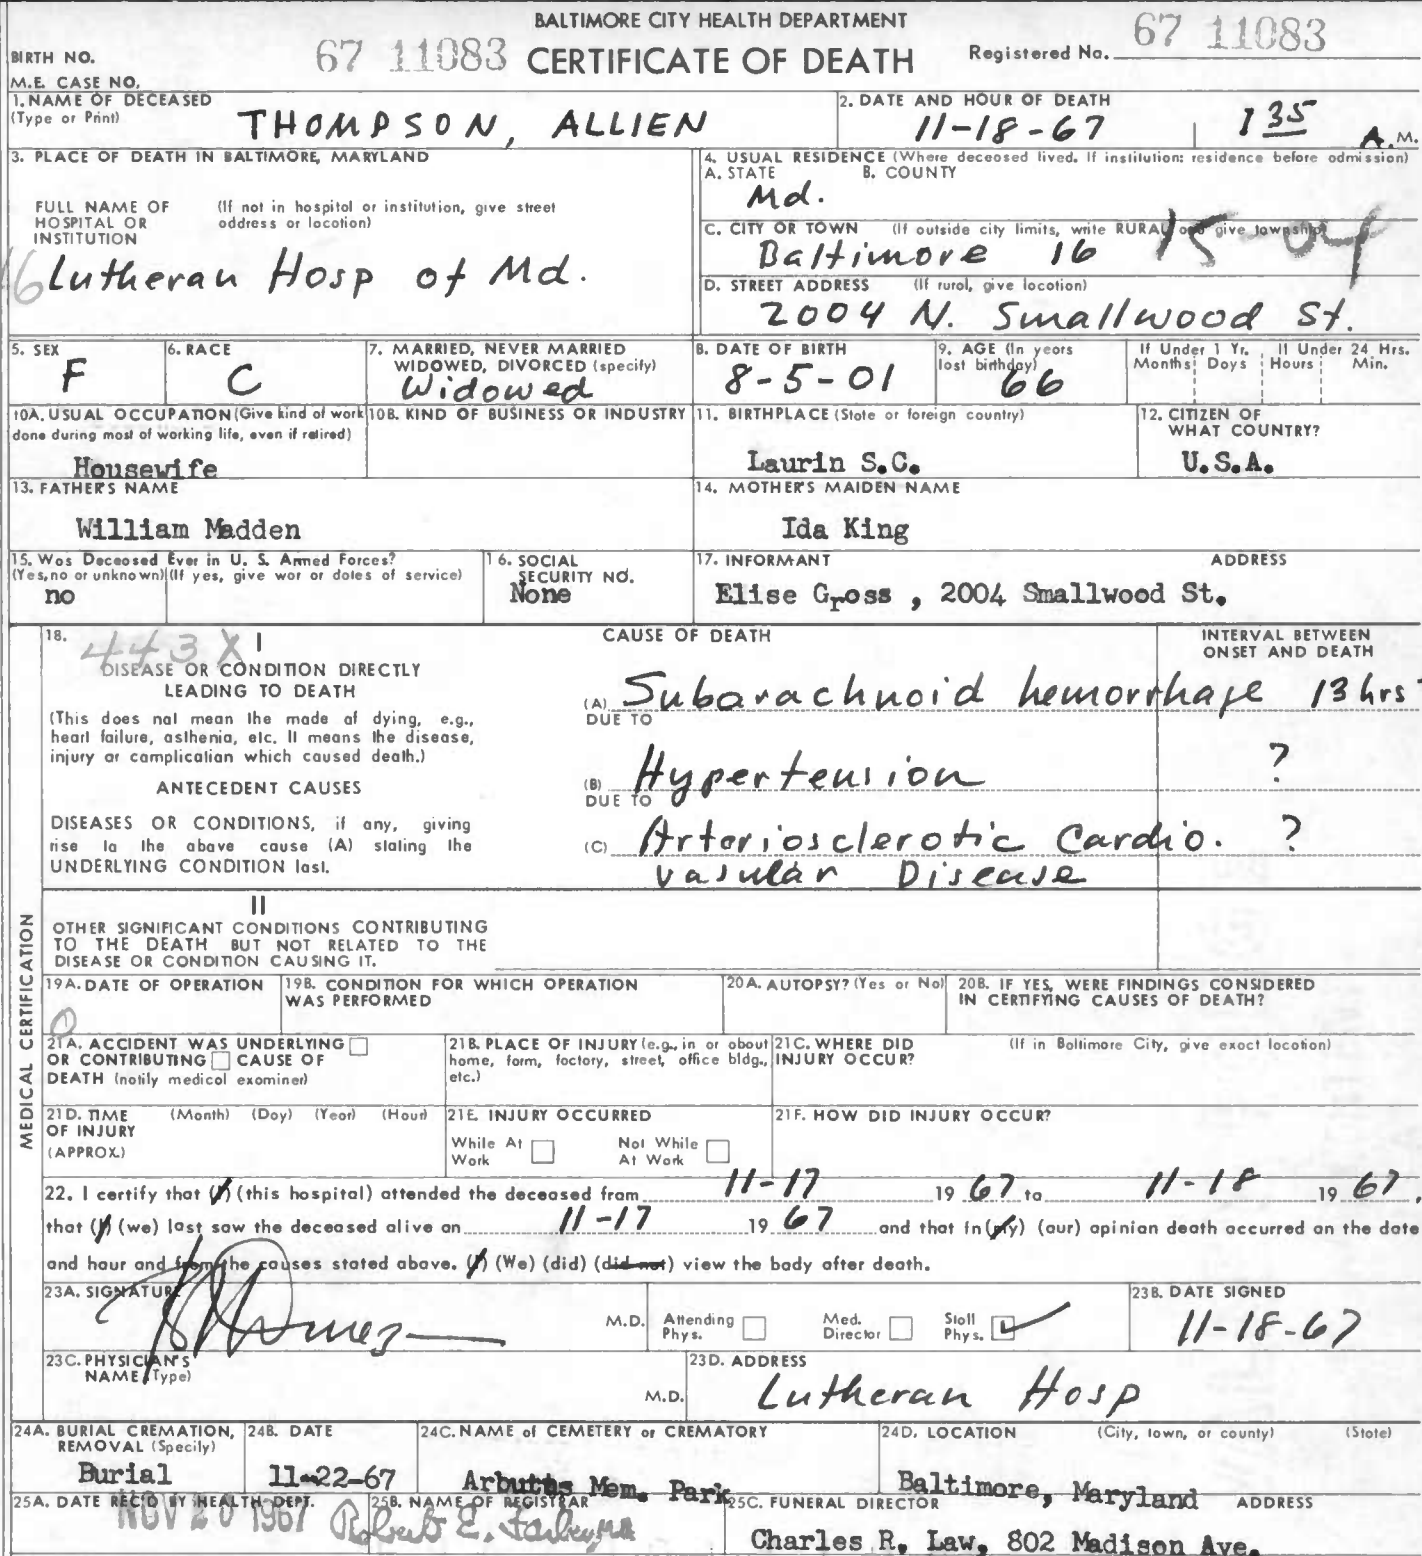 BALTIMORE CITY HEALTH DEPARTMENT
BIRTH NO. 67 11083 CERTIFICATE OF DEATH Registered No. 67 11083
M.E. CASE NO.
1. NAME OF DECEASED (Type or Print) THOMPSON, ALLIEN
2. DATE AND HOUR OF DEATH 11-18-67 1 35 A.M.
3. PLACE OF DEATH IN BALTIMORE, MARYLAND
FULL NAME OF HOSPITAL OR INSTITUTION (If not in hospital or institution, give street address or location)
46 Lutheran Hosp of Md.
4. USUAL RESIDENCE (Where deceased lived. If institution: residence before admission)
A. STATE B. COUNTY
Md.
C. CITY OR TOWN (If outside city limits, write RURAL and give township)
Baltimore 16 15-04
D. STREET ADDRESS (If rural, give location)
2004 N. Smallwood St.
5. SEX F
6. RACE C
7. MARRIED, NEVER MARRIED WIDOWED, DIVORCED (specify) Widowed
8. DATE OF BIRTH 8-5-01
9. AGE (In years lost birthday) 66
If Under 1 Yr. Months Days If Under 24 Hrs. Hours Min.
10A. USUAL OCCUPATION (Give kind of work done during most of working life, even if retired) Housewife
10B. KIND OF BUSINESS OR INDUSTRY
11. BIRTHPLACE (State or foreign country) Laurin S.C.
12. CITIZEN OF WHAT COUNTRY? U.S.A.
13. FATHER'S NAME William Madden
14. MOTHER'S MAIDEN NAME Ida King
15. Was Deceased Ever in U. S. Armed Forces? (Yes, no or unknown) (If yes, give war or dates of service) no
16. SOCIAL SECURITY NO. None
17. INFORMANT ADDRESS
Elise Gross , 2004 Smallwood St.
MEDICAL CERTIFICATION
18. 443X I CAUSE OF DEATH INTERVAL BETWEEN ONSET AND DEATH
DISEASE OR CONDITION DIRECTLY LEADING TO DEATH
(This does not mean the mode of dying, e.g., heart failure, asthenia, etc. It means the disease, injury or complication which caused death.)
(A) Subarachnoid hemorrhage 13 hrs
DUE TO
ANTECEDENT CAUSES
(B) Hypertension ?
DUE TO
DISEASES OR CONDITIONS, if any, giving rise to the above cause (A) stating the UNDERLYING CONDITION last.
(C) Arteriosclerotic Cardio. ?
vasular Disease
II
OTHER SIGNIFICANT CONDITIONS CONTRIBUTING TO THE DEATH BUT NOT RELATED TO THE DISEASE OR CONDITION CAUSING IT.
19A. DATE OF OPERATION 0
19B. CONDITION FOR WHICH OPERATION WAS PERFORMED
20A. AUTOPSY? (Yes or No)
20B. IF YES, WERE FINDINGS CONSIDERED IN CERTIFYING CAUSES OF DEATH?
21A. ACCIDENT WAS UNDERLYING OR CONTRIBUTING CAUSE OF DEATH (notify medical examiner)
21B. PLACE OF INJURY (e.g., in or about home, form, factory, street, office bldg., etc.)
21C. WHERE DID INJURY OCCUR? (If in Baltimore City, give exact location)
21D. TIME OF INJURY (APPROX.) (Month) (Day) (Year) (Hour)
21E. INJURY OCCURRED
While At Work Not While At Work
21F. HOW DID INJURY OCCUR?
22. I certify that (I) (this hospital) attended the deceased from 11-17 19 67 to 11-18 19 67,
that (I) (we) last saw the deceased alive on 11-17 19 67 and that in (my) (our) opinion death occurred on the date
and hour and from the causes stated above. (I) (We) (did) (did not) view the body after death.
23A. SIGNATURE M.D. Attending Phys. Med. Director Staff Phys.
23B. DATE SIGNED 11-18-67
23C. PHYSICIAN'S NAME (Type) M.D.
23D. ADDRESS Lutheran Hosp
24A. BURIAL CREMATION, REMOVAL (Specify) Burial
24B. DATE 11-22-67
24C. NAME of CEMETERY or CREMATORY Arbutus Mem. Park
24D. LOCATION (City, town, or county) (State) Baltimore, Maryland
25A. DATE REC'D BY HEALTH DEPT. NOV 20 1967
25B. NAME OF REGISTRAR Robert E. Farber
25C. FUNERAL DIRECTOR ADDRESS
Charles R. Law, 802 Madison Ave.